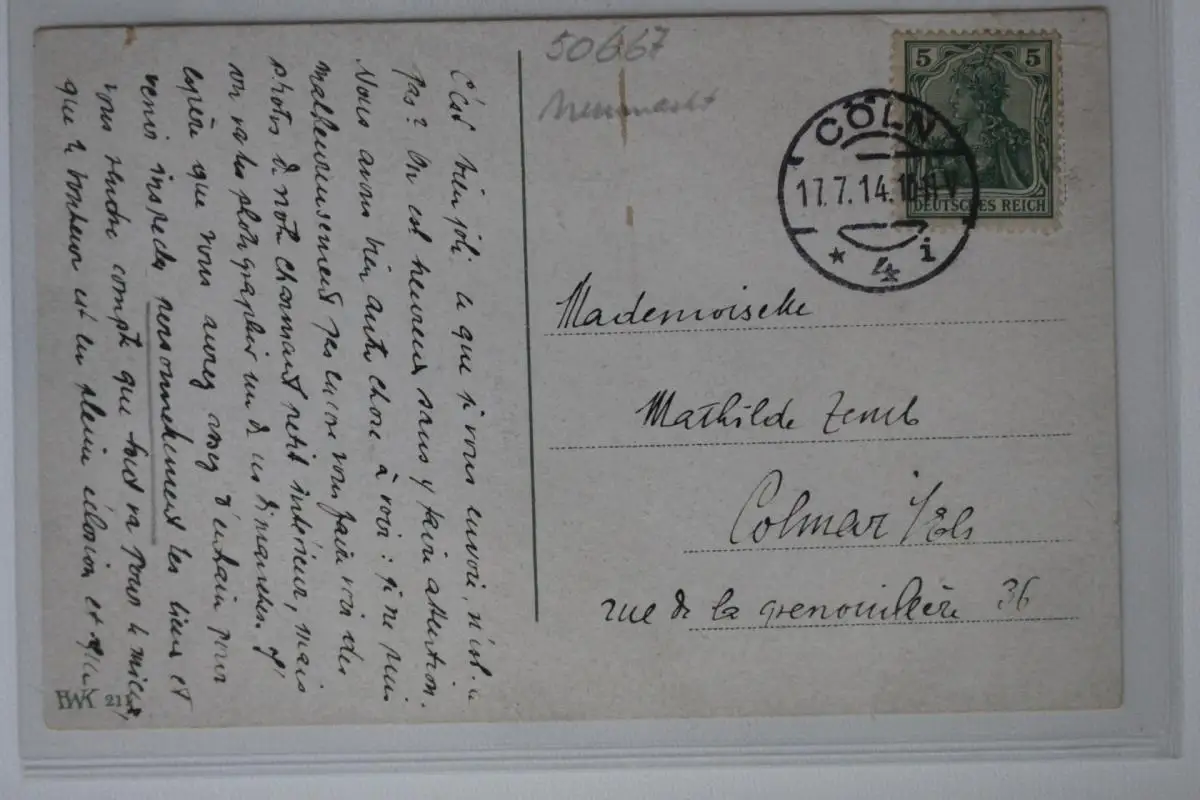 50667
Neumarkt
5 5
DEUTSCHES REICH
CÖLN
17.7.14.10-11 V
* 4 i
Mademoiselle
Mathilde Zemb
Colmar i/Els
rue de la grenouillère 36
C'est bien joli ce que je vous envoie, n'est-ce
pas? On est heureux sans y faire attention.
Nous avons bien autre chose à voir: je ne puis
malheureusement pas encore vous faire voir des
photos de notre charmant petit intérieur, mais
on va les photographier un de ces dimanches. J'
espère que vous aurez assez d'entrain pour
venir inspecter personnellement les lieux et
vous rendre compte que tout va pour le mieux,
que le bonheur est en pleine éclosion et
BWK 211